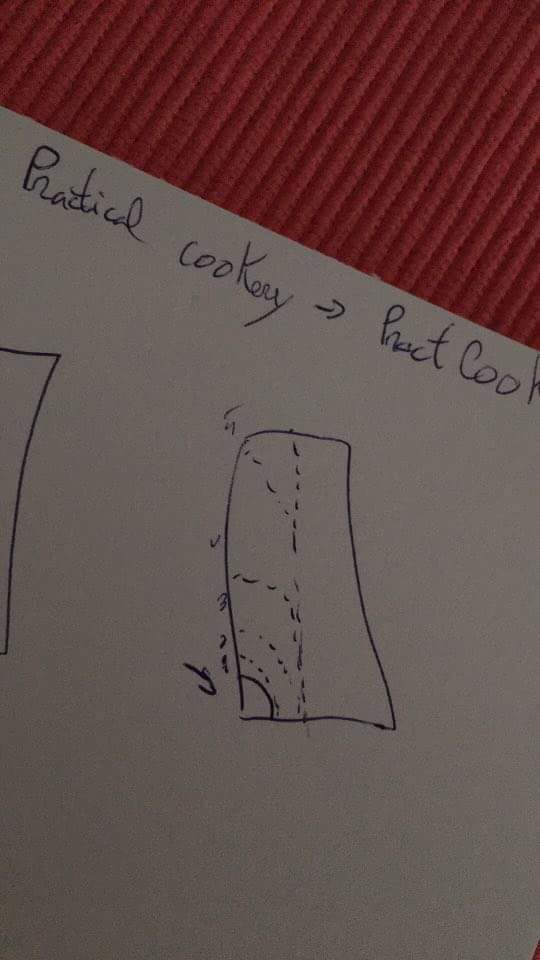 Practical cookery → Pract Cook
3
2
1